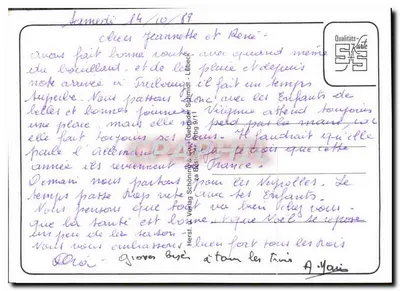 Samedi 14/10/89
Chers Jeannette et René -
avons fait bonne route, avec quand même
du brouillard et de la pluie et depuis
notre arrivée à Fribourg il fait un temps
superbe. Nous passons donc, avec les Enfants de
belles et bonnes journées. Virginie attend toujours
une place, mais elle ne perd pas la main car
elle fait toujours ses Il faudrait qu'elle
parle l'Allemand que cette
année ils reviennent France.
Demain nous partons pour les Le
temps passe trop vite avec les Enfants.
Nous pensons que tout va bien chez vous -
que la santé est bonne et que Noël se repose
un peu de la saison -
Nous vous embrassons bien fort tous les trois
grosses bises à tous les Trois
Qualitäts-Karte
Verlag Schöning Gebrüder Schmidt - Lübeck